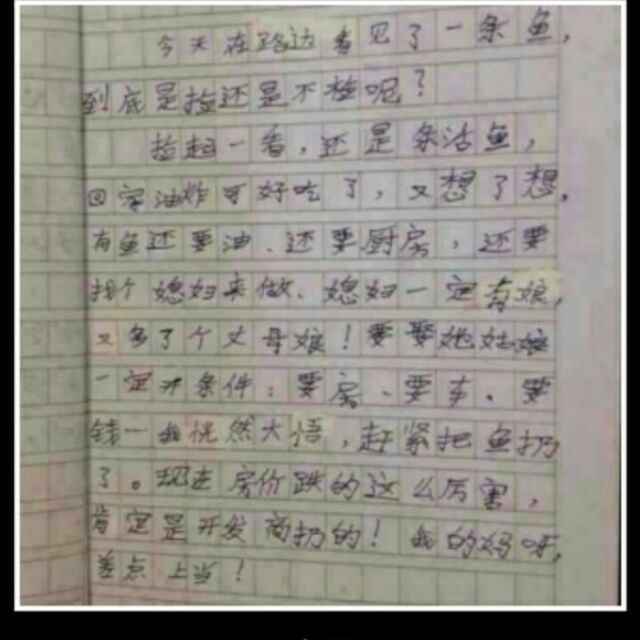 今天在路边看见了一条鱼，
到底是捡还是不捡呢？
捡起一看，还是条活鱼，
回家油炸可好吃了，又想了想。
有鱼还要油、还要厨房，还要
找个媳妇来做、媳妇一定有娘，
又多了个丈母娘！要娶她姑娘
一定有条件：要房、要车、要
钱一我恍然大悟，赶紧把鱼扔
了。现在房价跌的这么厉害，
肯定是开发商扔的！我的妈呀，
差点上当！